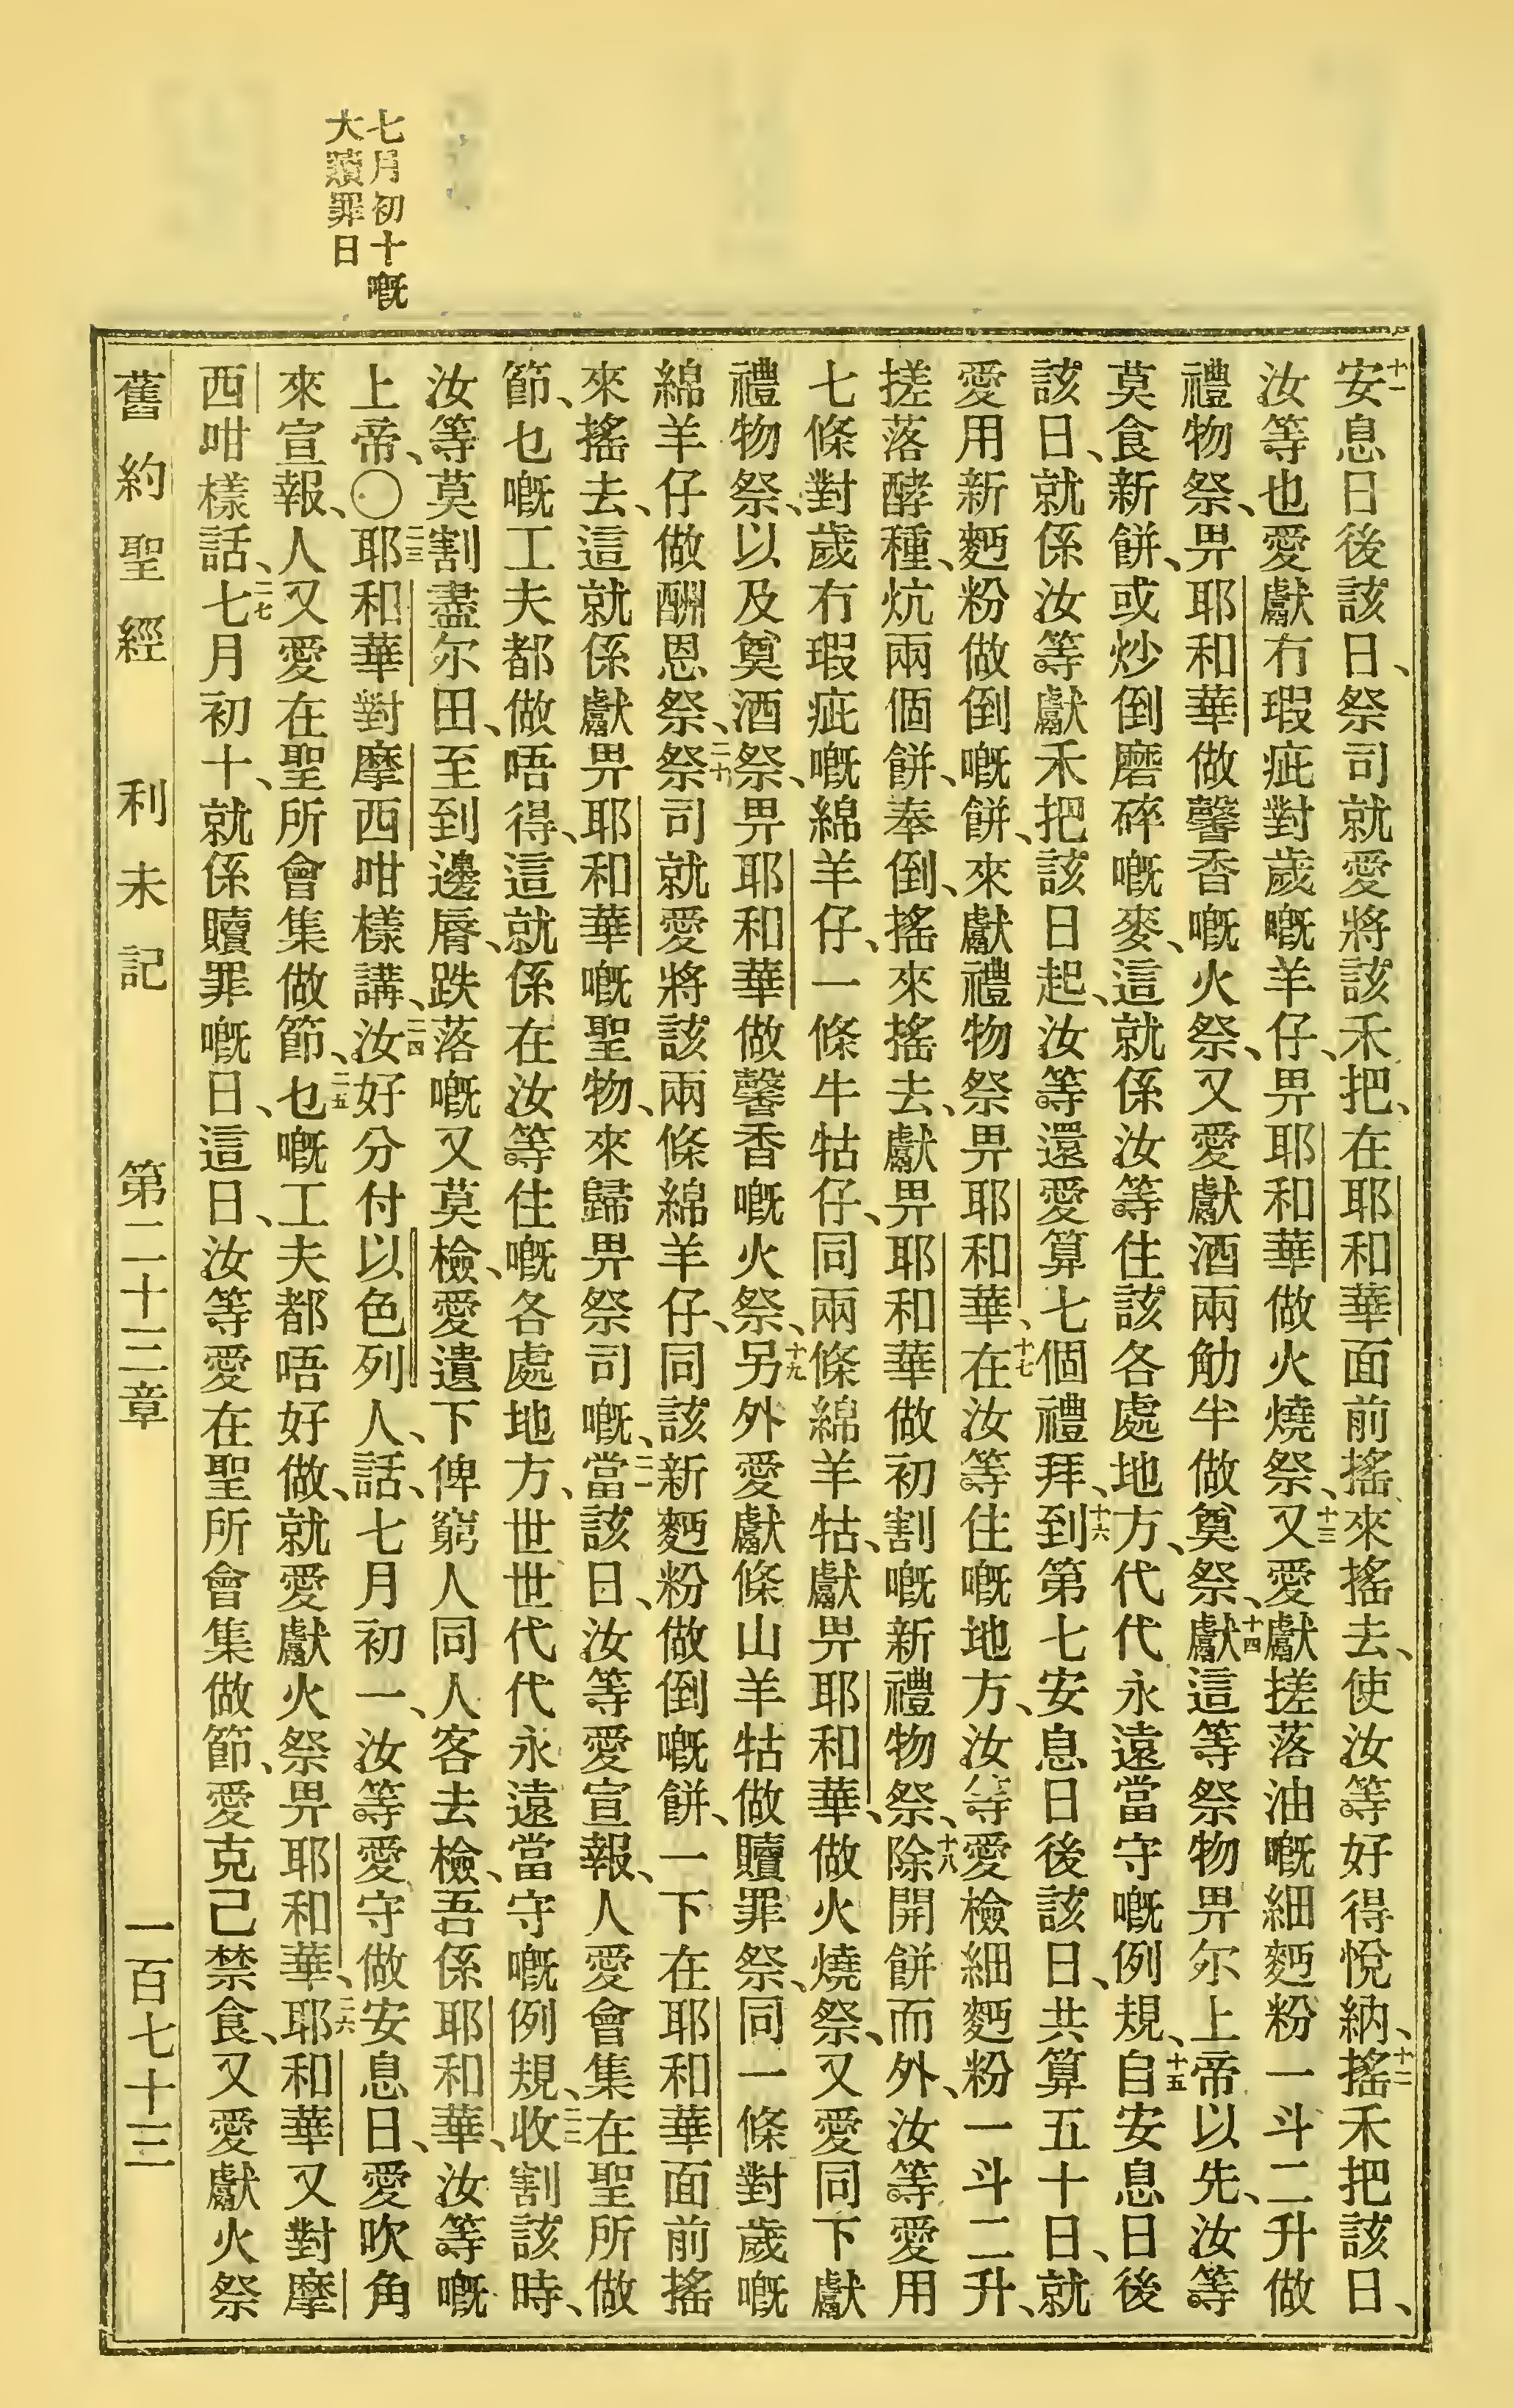 七月初十嘅
大贖罪日
十一安息日後該日、祭司就愛將該禾把、在耶和華面前搖來搖去、使汝等好得悅納、十二搖禾把該日、
汝等也愛獻冇瑕疵對歲嘅羊仔、畀耶和華做火燒祭、十三又愛獻搓落油嘅細麪粉一斗二升做
禮物祭、畀耶和華做馨香嘅火祭、又愛獻酒兩觔半做奠祭、十四獻這等祭物畀尔上帝以先、汝等
莫食新餅、或炒倒磨碎嘅麥、這就係汝等住該各處地方、代代永遠當守嘅例規、十五自安息日後
該日、就係汝等獻禾把該日起、汝等還愛算七個禮拜、十六到第七安息日後該日、共算五十日、就
愛用新麪粉做倒嘅餅、來獻禮物祭畀耶和華、十七在汝等住嘅地方、汝等愛檢細麪粉一斗二升、
搓落酵種、炕兩個餅、奉倒、搖來搖去、獻畀耶和華做初割嘅新禮物祭、十八除開餅而外、汝等愛用
七條對歲冇瑕疵嘅綿羊仔、一條牛牯仔、同兩條綿羊牯、獻畀耶和華、做火燒祭、又愛同下獻
禮物祭、以及奠酒祭、畀耶和華做馨香嘅火祭、十九另外愛獻條山羊牯做贖罪祭、同一條對歲嘅
綿羊仔做酬恩祭、二十祭司就愛將該兩條綿羊仔、同該新麪粉做倒嘅餅、一下在耶和華面前搖
來搖去、這就係獻畀耶和華嘅聖物、來歸畀祭司嘅、二一當該日、汝等愛宣報、人愛會集在聖所做
節、乜嘅工夫都做唔得、這就係在汝等住嘅各處地方、世世代代永遠當守嘅例規、二二收割該時、
汝等莫割盡尔田、至到邊脣、跌落嘅又莫檢、愛遺下俾窮人同人客去檢、吾係耶和華、汝等嘅
上帝、〇二三耶和華對摩西咁樣講、二四汝好分付以色列人、話、七月初一、汝等愛守做安息日、愛吹角
來宣報、人又愛在聖所會集做節、二五乜嘅工夫都唔好做、就愛獻火祭畀耶和華、二六耶和華又對摩
西咁樣話、二七七月初十、就係贖罪嘅日、這日、汝等愛在聖所會集做節、愛克己禁食、又愛獻火祭
舊約聖經 利未記 第二十三章 一百七十三